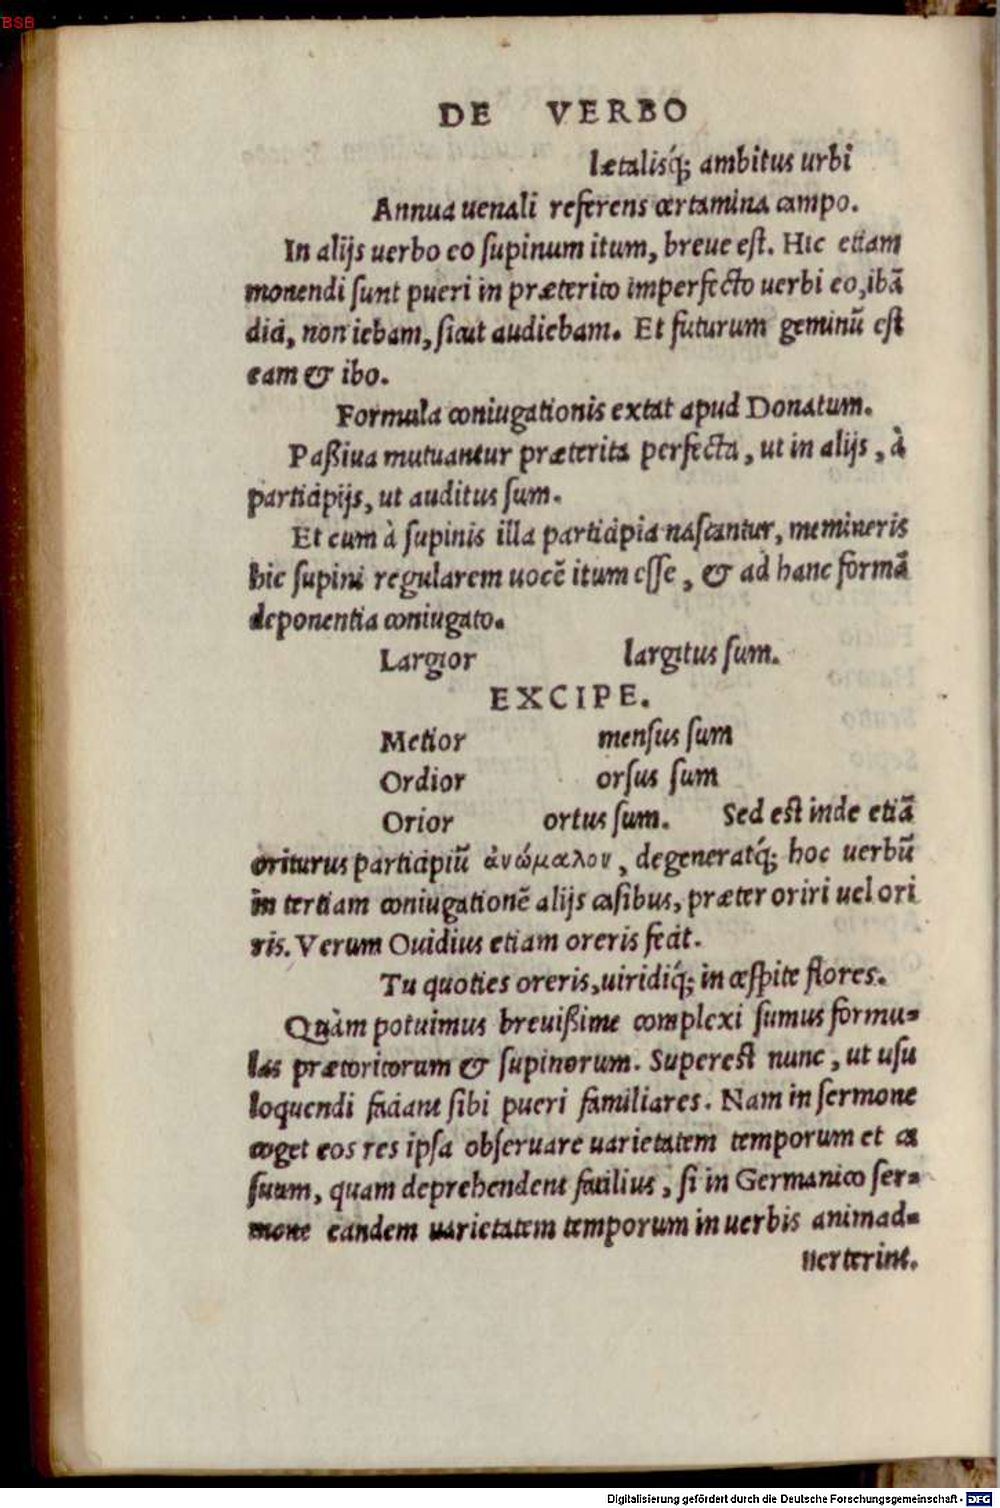 BSB
DE VERBO
lætalisq́; ambitus urbi
Annua uenali referens certamina campo.
In alijs uerbo eo ſupinum itum, breue eſt. Hic etiam
monendi ſunt pueri in præterito imperfecto uerbi eo, ibã
dici, non iebam, ſicut audiebam. Et futurum geminũ eſt
eam & ibo.
Formula coniugationis extat apud Donatum.
Paßiua mutuantur præterita perfecta, ut in alijs, à
participijs, ut auditus ſum.
Et cum à ſupinis illa participia naſcantur, memineris
hic ſupini regularem uocẽ itum eſſe, & ad hanc formã
deponentia coniugato.
Largior largitus ſum.
EXCIPE.
Metior menſus ſum
Ordior orſus ſum
Orior ortus ſum. Sed eſt inde etiã
oriturus participiũ ἀνώμαλον, degeneratq́; hoc uerbũ
in tertiam coniugationẽ alijs caſibus, præter oriri uel ori
ris. Verum Ouidius etiam oreris fecit.
Tu quoties oreris, uiridiq́; in ceſpite flores.
Quàm potuimus breuißime complexi ſumus formu⸗
las præteritorum & ſupinorum. Supereſt nunc, ut uſu
loquendi faciant ſibi pueri familiares. Nam in ſermone
coget eos res ipſa obſeruare uarietatem temporum et ca
ſuum, quam deprehendent facilius, ſi in Germanico ſer⸗
mone eandem uarietatem temporum in uerbis animad⸗
uerterint.
Digitalisierung gefördert durch die Deutsche Forschungsgemeinschaft - DFG